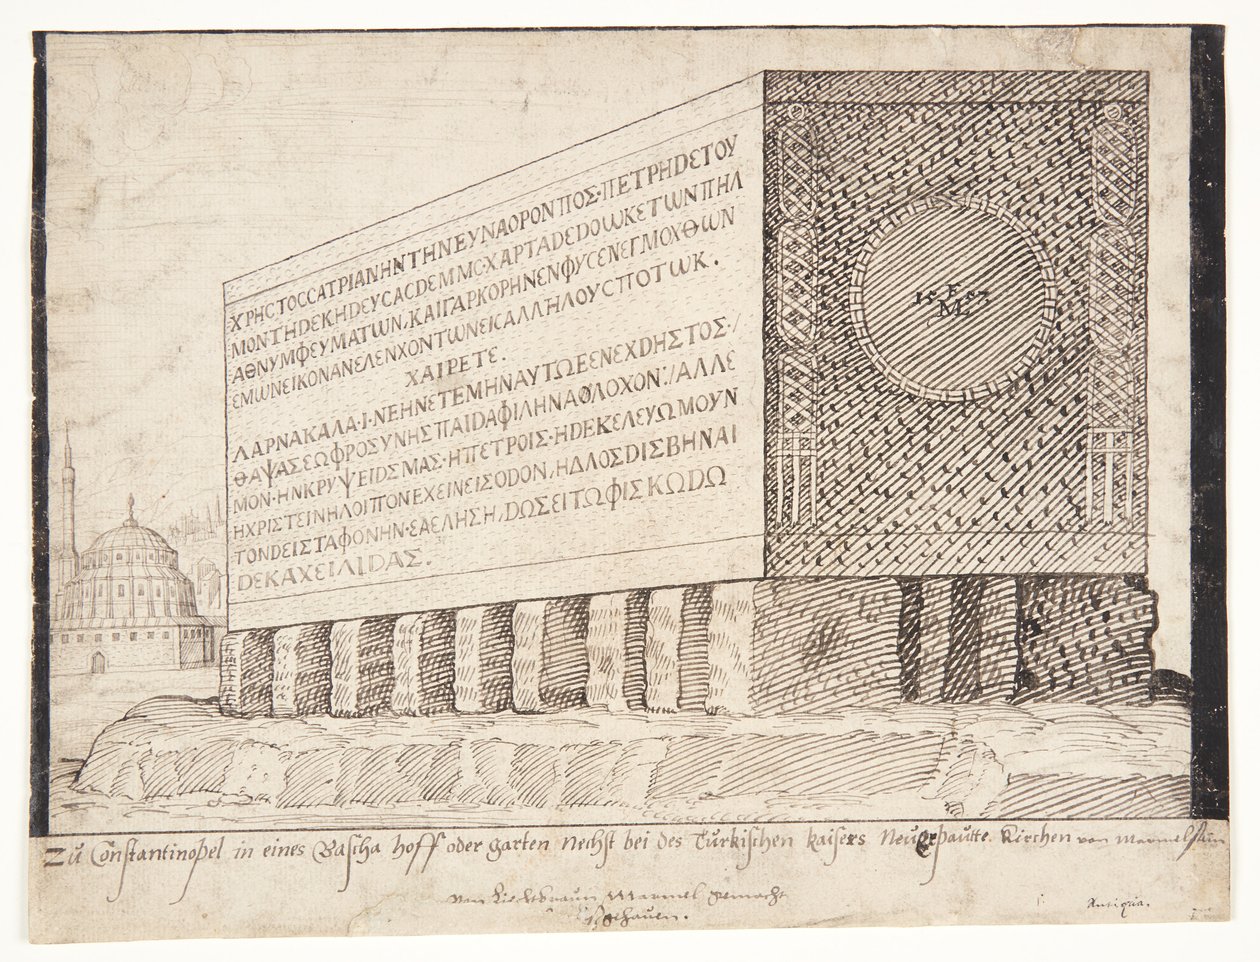 ΧΡΗCΤΟCCΑΤΡΙΑΝΗΝΤΗΝΕΥΝΑΟΡΟΝΠΟΣ·ΠΕΤΡΗDΕΤΟΥ
ΜΟΝ·ΤΗDΕΚΗDΕΥCΑCDΕΜΜC·ΧΑΡΤΑDΕDΟΩΚΕΤΩΝΠΗΛ
ΑΘΝΥΜΦΕΥΜΑΤΩΝ,ΚΑΙΓΑΡΚΟΡΗΝΕΝΦΥCΕΝΕΓΜΟΧΘΩΝ
ΕΜΩΝΕΙΚΟΝΑΝΕΛΕΝΧΟΝΤΩΝΕΙCΑΛΛΗΛΟΥCΠΟΤΩΚ.
ΧΑΙΡΕΤΕ.
ΛΑΡΝΑΚΑΛΑ·Ι·ΝΕΗΝΕΤΕΜΗΝΑΥΤΩΕΕΝΕΧDΗΣΤΟΣ:/
ΘΑΨΑΣΕΩΦΡΟΣΥΝΗΣΠΑΙDΑΦΙΛΗΝΑΘΛΟΧΟΝ:/ΑΛΛΕ
ΜΟΝ·ΗΝΚΡΥΨΕΙDΣΜΑΣ·ΗΠΕΤΡΟΙΣ·ΗDΕΚΕΛΕΥΩΜΟΥΝ
ΗΧΡΙΣΤΕΙΝΗΛΟΙΠΟΝΕΧΕΙΝΕΙΣΟDΟΝ,ΗΔΛΟΣDΙΣΒΗΝΑΙ
ΤΟΝDΕΙΣΤΑΦΟΝΗΝ·ΕΑΕΛΗΣΗ,DΩΣΕΙΤΩΦΙΣΚΩDΩ
DΕΚΑΧΕΙΛΙDΑΣ.
15 F 57
ML
Zu Constantinopel in eines Bascha hoff oder garten nechst bei des Turkischen kaisers Neugepautte Kirchen von Marmelstain
von Liechtbraun Marmel gemacht
gehauen.
Antiqua.